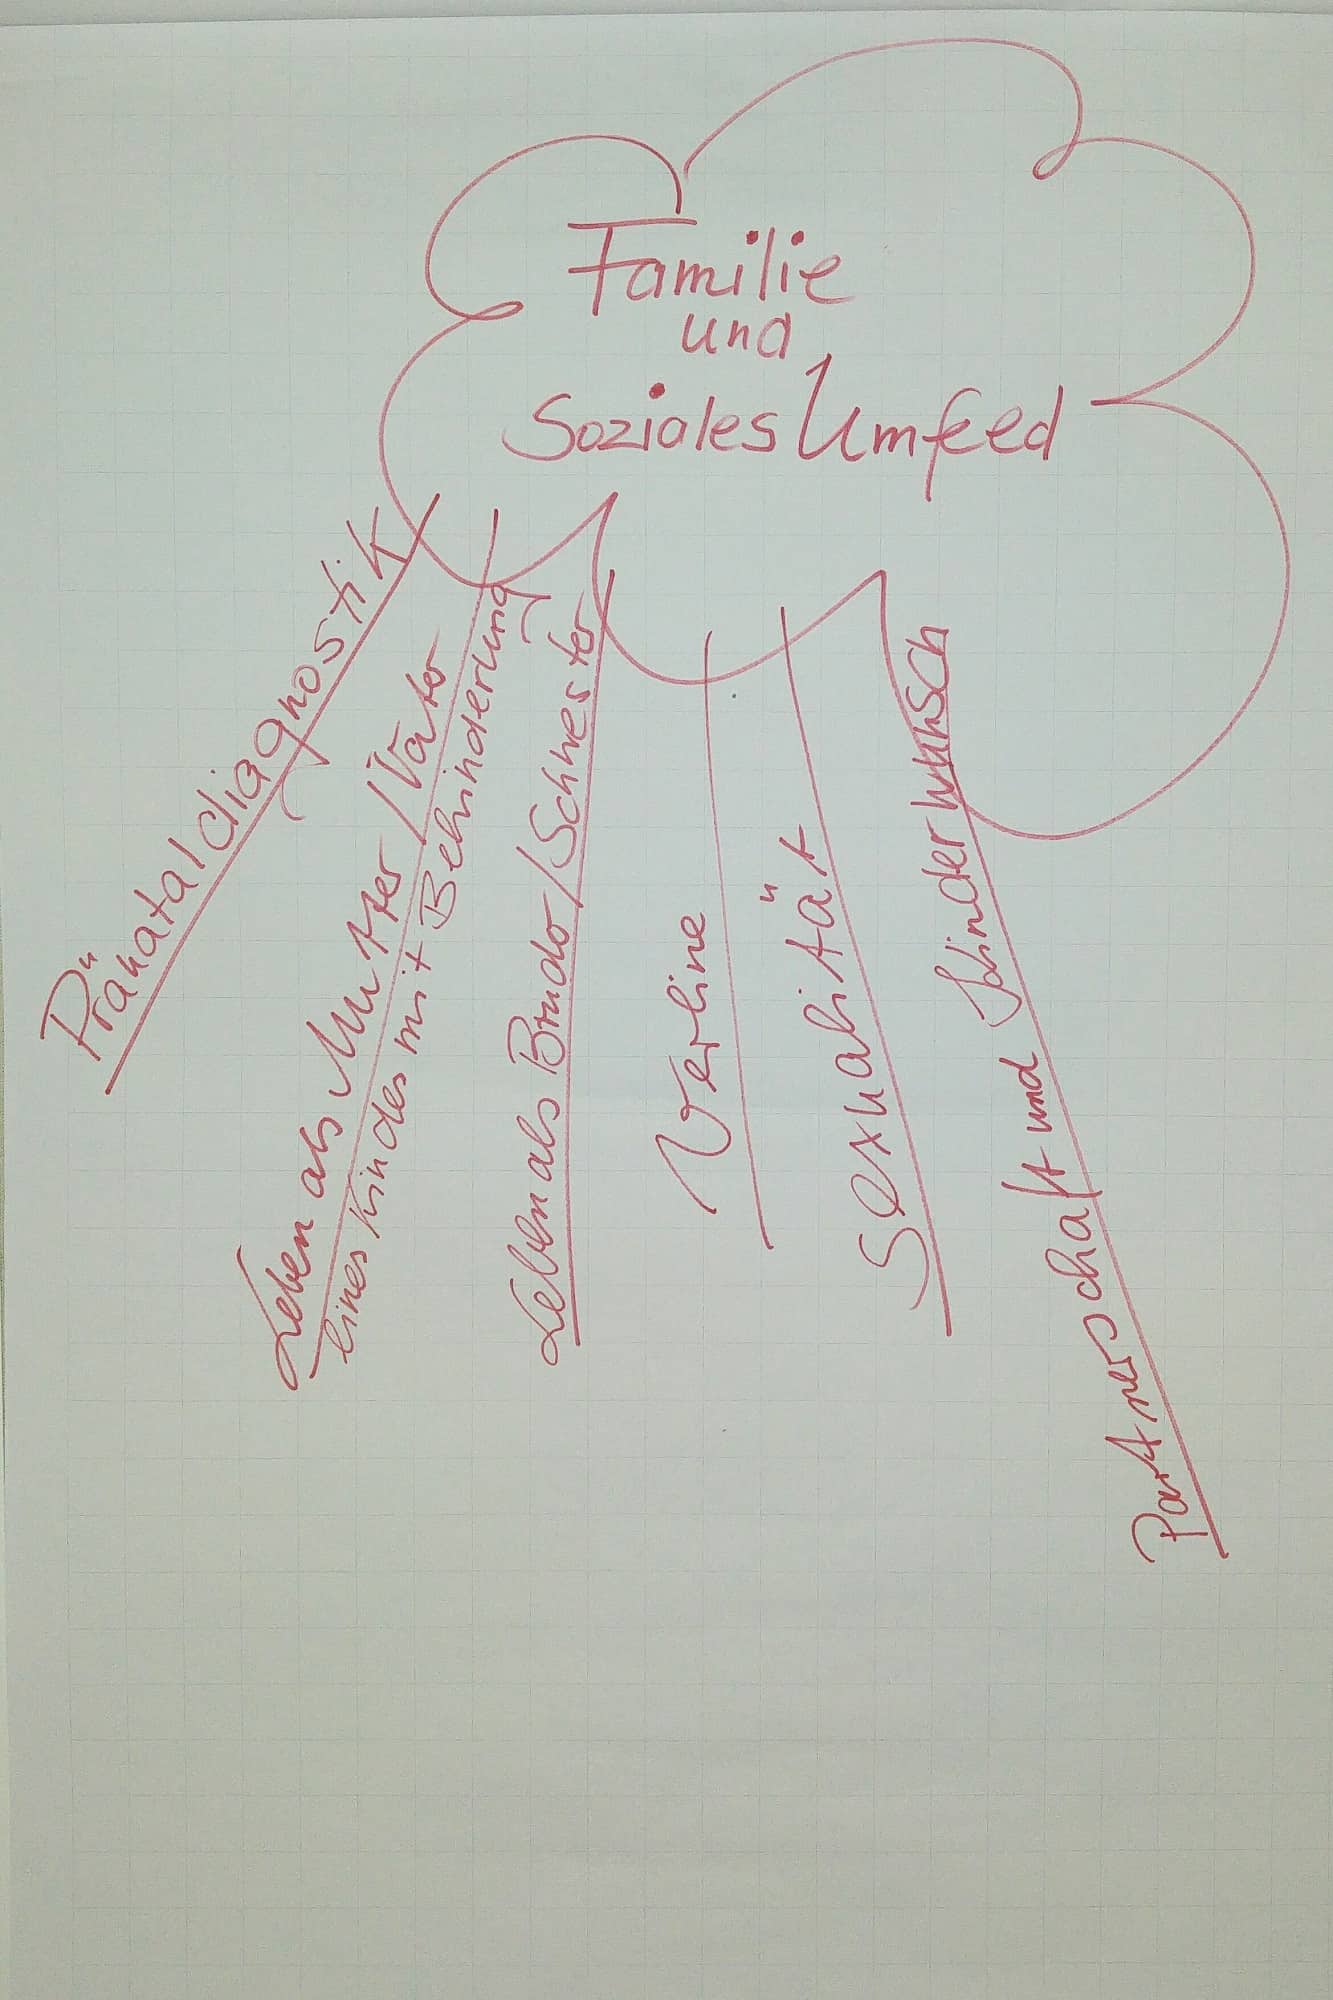 Familie
und
Soziales Umfeld
Pränataldiagnostik
Leben als Mutter/Vater
eines Kindes mit Behinderung
Leben als Bruder/Schwester
Vereine
Sexualität
Partnerschaft und Kinderwunsch